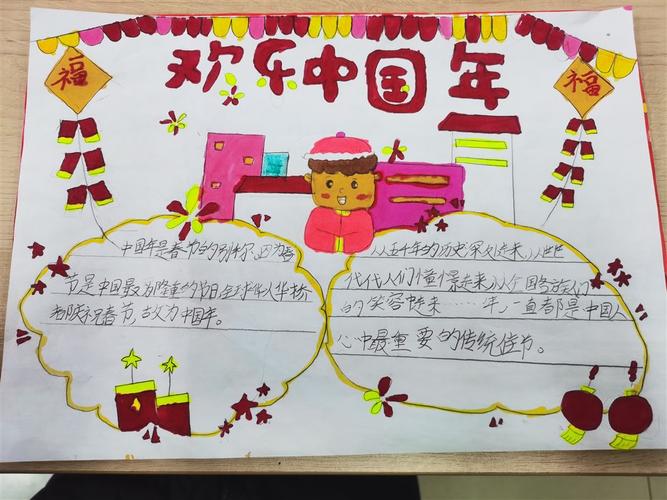 欢乐中国年
福
福
中国年是春节的别称,因为春
节是中国最为隆重的节日,全球华人华侨
都庆祝春节,故为中国年。
从五千年的历史深处走来,从世世
代代人们憧憬走来,从全国各族人们
的笑容中走来……年,一直都是中国人
心中最重要的传统佳节。